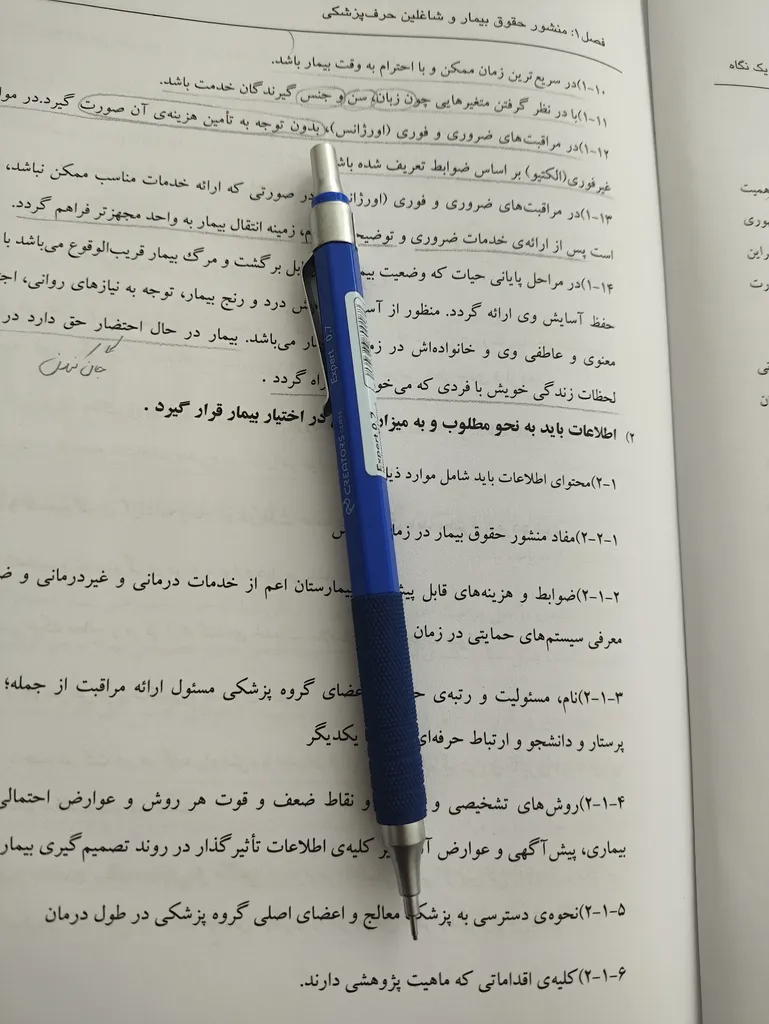 فصل۱: منشور حقوق بیمار و شاغلین حرف‌پزشکی
۱-۱۰)در سریع‌ترین زمان ممکن و با احترام به وقت بیمار باشد.
۱-۱۱)با در نظر گرفتن متغیرهایی چون زبان، سن و جنس گیرندگان خدمت باشد.
۱-۱۲)در مراقبت‌های ضروری و فوری (اورژانس)، بدون توجه به تأمین هزینه‌ی آن صورت گیرد.در
غیرفوری(الکتیو) بر اساس ضوابط تعریف شده
۱-۱۳)در مراقبت‌های ضروری و فوری در صورتی که ارائه خدمات مناسب ممکن نباشد،
است پس از ارائه‌ی خدمات ضروری و زمینه انتقال بیمار به واحد مجهزتر فراهم گردد.
۱-۱۴)در مراحل پایانی حیات که وضعیت برگشت و مرگ بیمار قریب‌الوقوع می‌باشد با
حفظ آسایش وی ارائه گردد. منظور از درد و رنج بیمار، توجه به نیازهای روانی،
معنوی و عاطفی وی و خانواده‌اش در می‌باشد. بیمار در حال احتضار حق دارد در
جان کندن
لحظات زندگی خویش با فردی که گردد .
۲) اطلاعات باید به نحو مطلوب و به در اختیار بیمار قرار گیرد .
۲-۱)محتوای اطلاعات باید شامل موارد
۲-۲-۱)مفاد منشور حقوق بیمار در
۲-۱-۲)ضوابط و هزینه‌های قابل بیمارستان اعم از خدمات درمانی و غیردرمانی و
معرفی سیستم‌های حمایتی در زمان
۲-۱-۳)نام، مسئولیت و رتبه‌ی اعضای گروه پزشکی مسئول ارائه مراقبت از جمله؛
پرستار و دانشجو و ارتباط یکدیگر
۲-۱-۴)روش‌های تشخیصی و و نقاط ضعف و قوت هر روش و عوارض احتمالی
بیماری، پیش‌آگهی و عوارض کلیه‌ی اطلاعات تأثیرگذار در روند تصمیم‌گیری بیمار
۲-۱-۵)نحوه‌ی دسترسی به پزشک معالج و اعضای اصلی گروه پزشکی در طول درمان
۲-۱-۶)کلیه‌ی اقداماتی که ماهیت پژوهشی دارند.
CREATORS Expert 0.7
Expert 0.7
یک نگاه